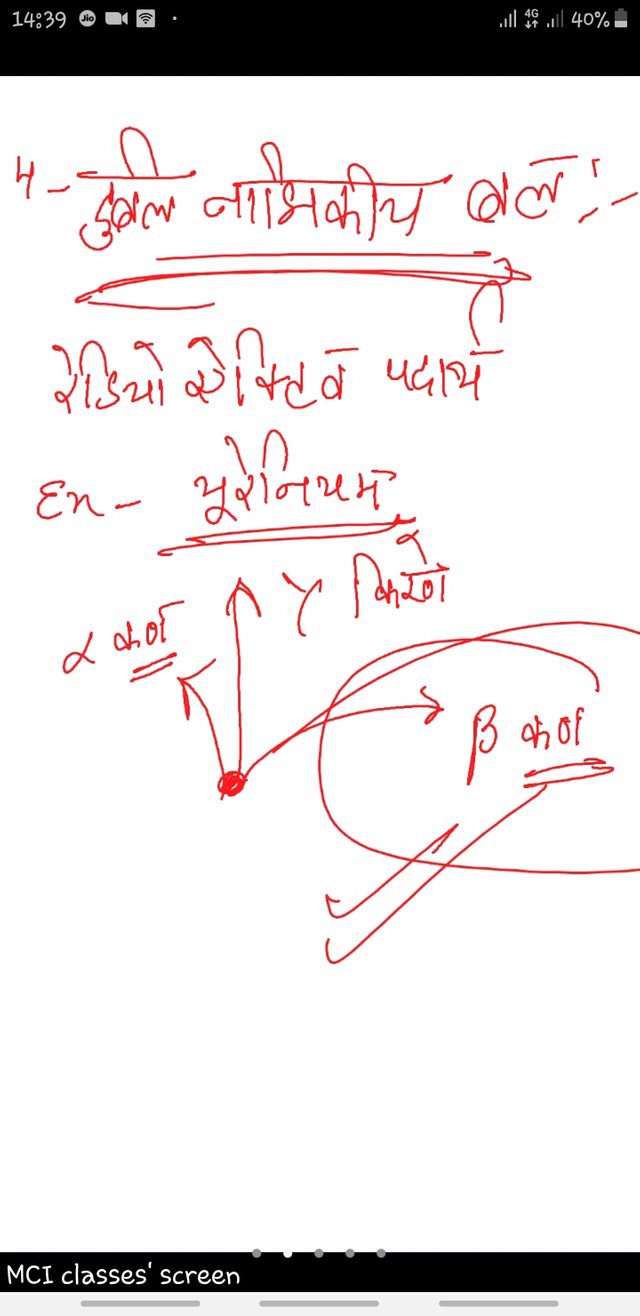 14:39 Jio 4G 40%
4- दुर्बल नाभिकीय बल :-
रेडियो एक्टिव पदार्थ
Ex- यूरेनियम
γ किरणे
α कण
β कण
MCI classes' screen